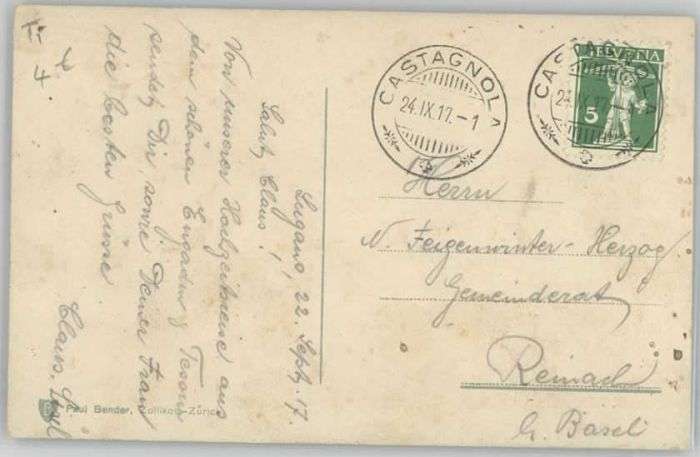 Lugano, 22. Sept. 17.
Salut, Claus!
Von unserer Hochzeitsreise aus
dem schönen Engadin & Tessin
sendet Dir, sowie Deiner Frau
die besten Grüsse
Claus.
4
CASTAGNOLA
24.IX.17.-1
CASTAGNOLA
24.IX.17.-1
HELVETIA
5
Herrn
N. Feigenwinter-Herzog
Gemeinderat
Reinach
b. Basel
Paul Bender, Zollikon-Zürich